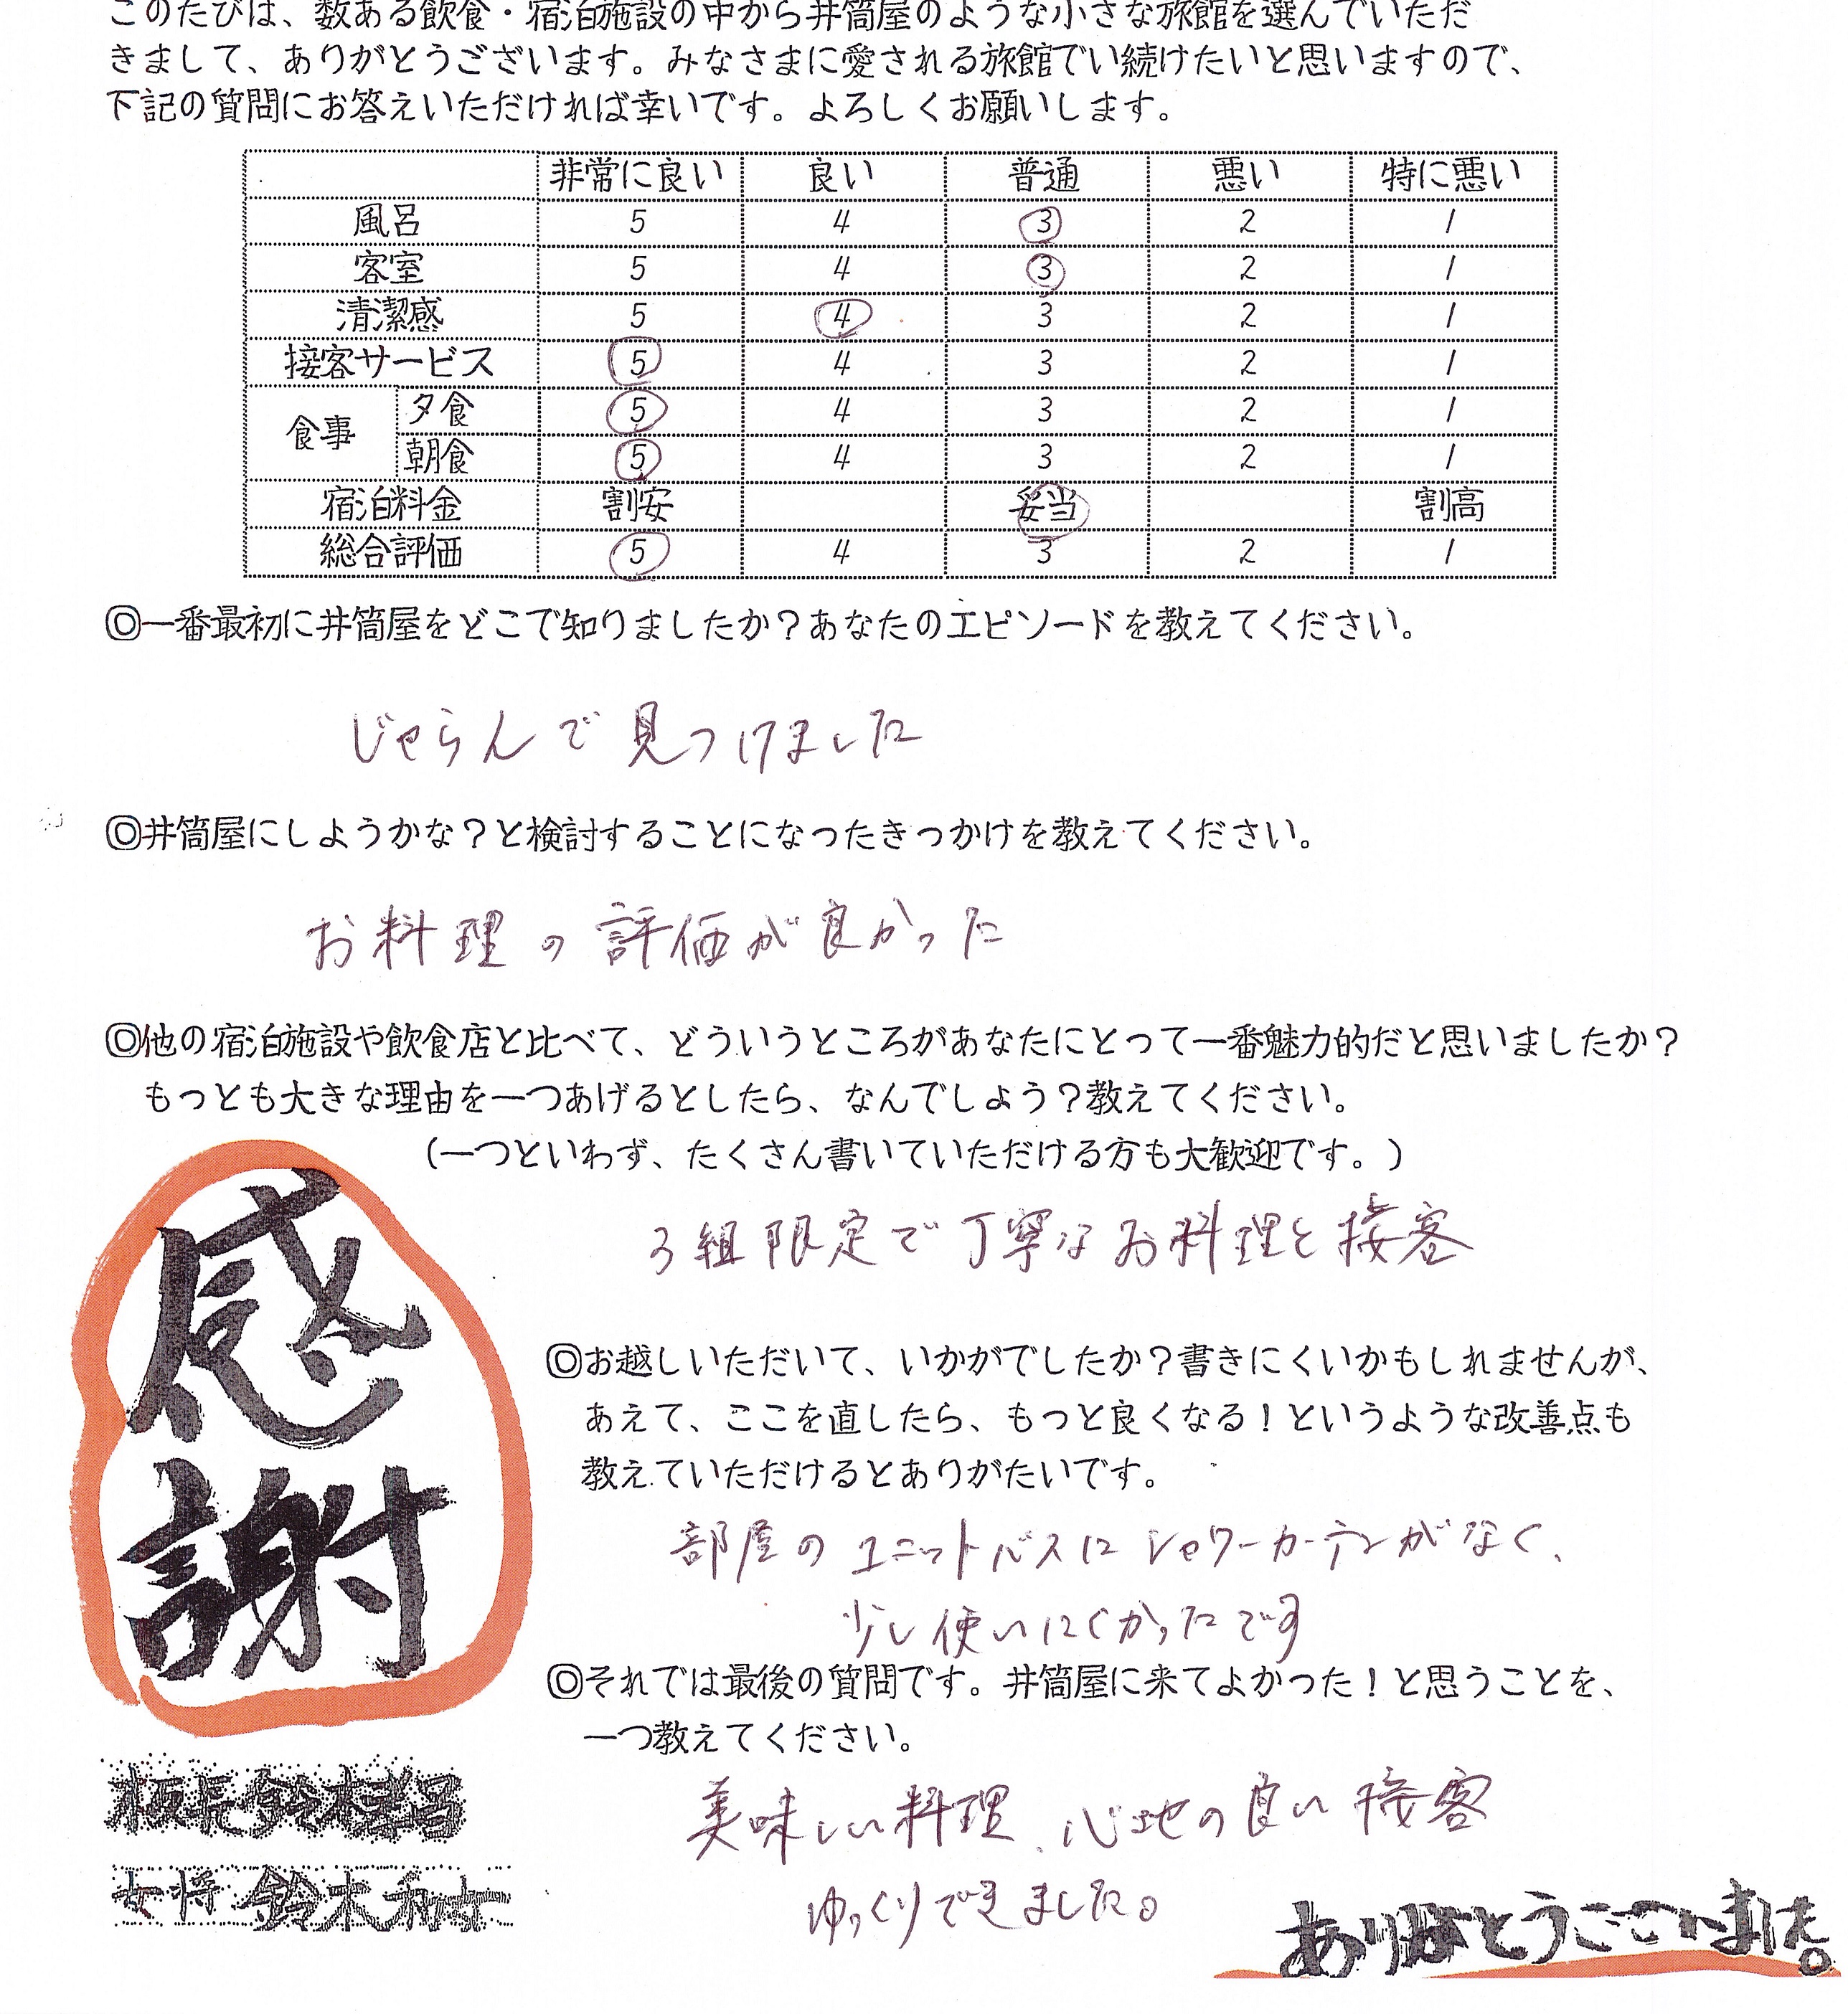 このたびは、数ある飲食・宿泊施設の中から井筒屋のような小さな旅館を選んでいただ
きまして、ありがとうございます。みなさまに愛される旅館でい続けたいと思いますので、
下記の質問にお答えいただければ幸いです。よろしくお願いします。
非常に良い 良い 普通 悪い 特に悪い
風呂 5 4 3 2 1
客室 5 4 3 2 1
清潔感 5 4 3 2 1
接客サービス 5 4 3 2 1
食事 夕食 5 4 3 2 1
朝食 5 4 3 2 1
宿泊料金 割安 妥当 割高
総合評価 5 4 3 2 1
◎一番最初に井筒屋をどこで知りましたか？あなたのエピソードを教えてください。
じゃらんで見つけました
◎井筒屋にしようかな？と検討することになったきっかけを教えてください。
お料理の評価が良かった
◎他の宿泊施設や飲食店と比べて、どういうところがあなたにとって一番魅力的だと思いましたか？
もっとも大きな理由を一つあげるとしたら、なんでしょう？教えてください。
（一つといわず、たくさん書いていただける方も大歓迎です。）
3組限定で丁寧なお料理と接客
◎お越しいただいて、いかがでしたか？書きにくいかもしれませんが、
あえて、ここを直したら、もっと良くなる！というような改善点も
教えていただけるとありがたいです。
部屋のユニットバスにシャワーカーテンがなく、
少し使いにくかったです
◎それでは最後の質問です。井筒屋に来てよかった！と思うことを、
一つ教えてください。
美味しい料理、心地の良い接客
ゆっくりできました。
感謝
板長 鈴木
女将 鈴木
ありがとうございました。